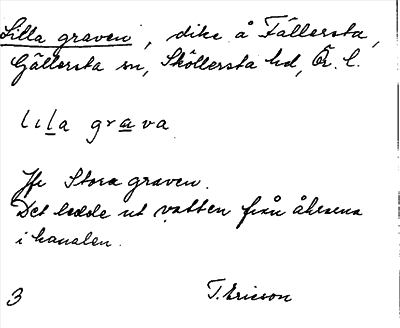 Lilla graven, dike å Fällersta,
Gällersta sn, Sköllersta hd, Ör. l.
lıla grava
Jfr Stora graven.
Det ledde ut vatten från åkrarna
i kanalen.
3 T. Ericson